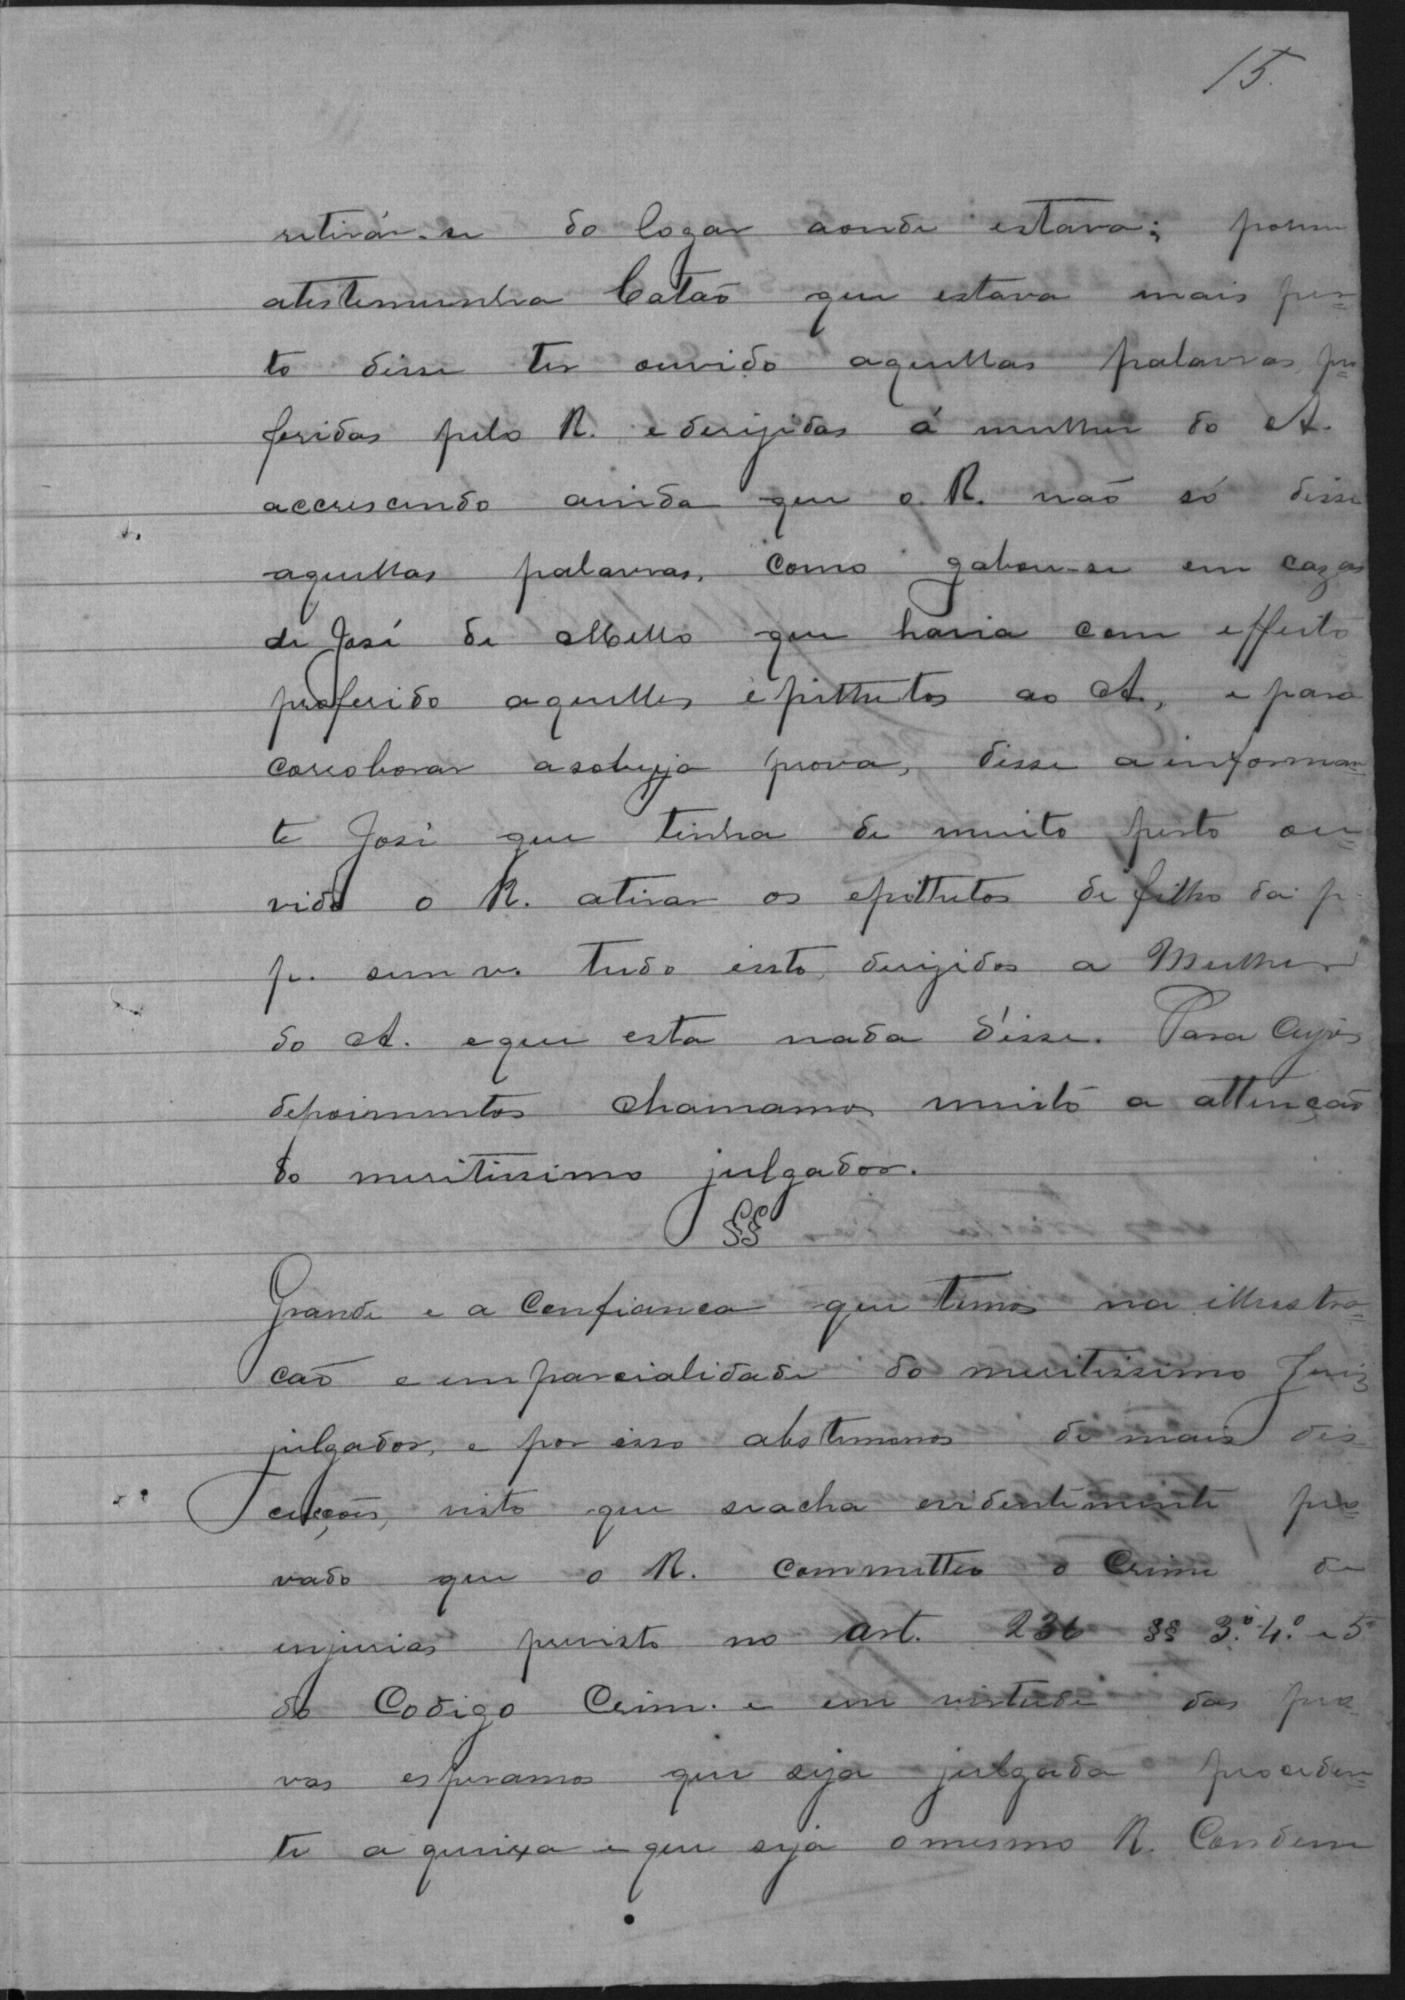 15.
retirár-se do logar aonde estava; porem
atestemunha Catão que estava mais per=
to disse ter ouvido aquellas palavras pro=
feridas pelo R. e derijidas á mulher do A.
accrescendo ainda que o R. não só disse
aquellas palavras, como gabou-se em cazas
de José de Mello que havia com effeito
proferido aquelles epithetos ao A., e para
corroborar asobeja prova, disse a informan=
te José que tinha de muito perto ou=
vido o R. atirar os epithetos de filho da p.
p. sem v. tudo isto derijidos a Mulher
do A. eque esta nada disse. Para cujos
depoimentos chamamos muito a attenção
do meritissimo julgador.
§§
Grande e a Confianca que temos na illustra=
cão e emparcialidade do meritissimo Juiz
julgador, e por isso abstemonos de mais dis
cucções, visto que seacha evidentimente pro=
vado que o R. committeo o Crime de
injurias previsto no art. 236 §§ 3.º 4.º e 5º
do Codigo Crim. e em virtude das pro
vas esperamos que seja julgada proceden=
te a queixa e que seja omesmo R. Condem